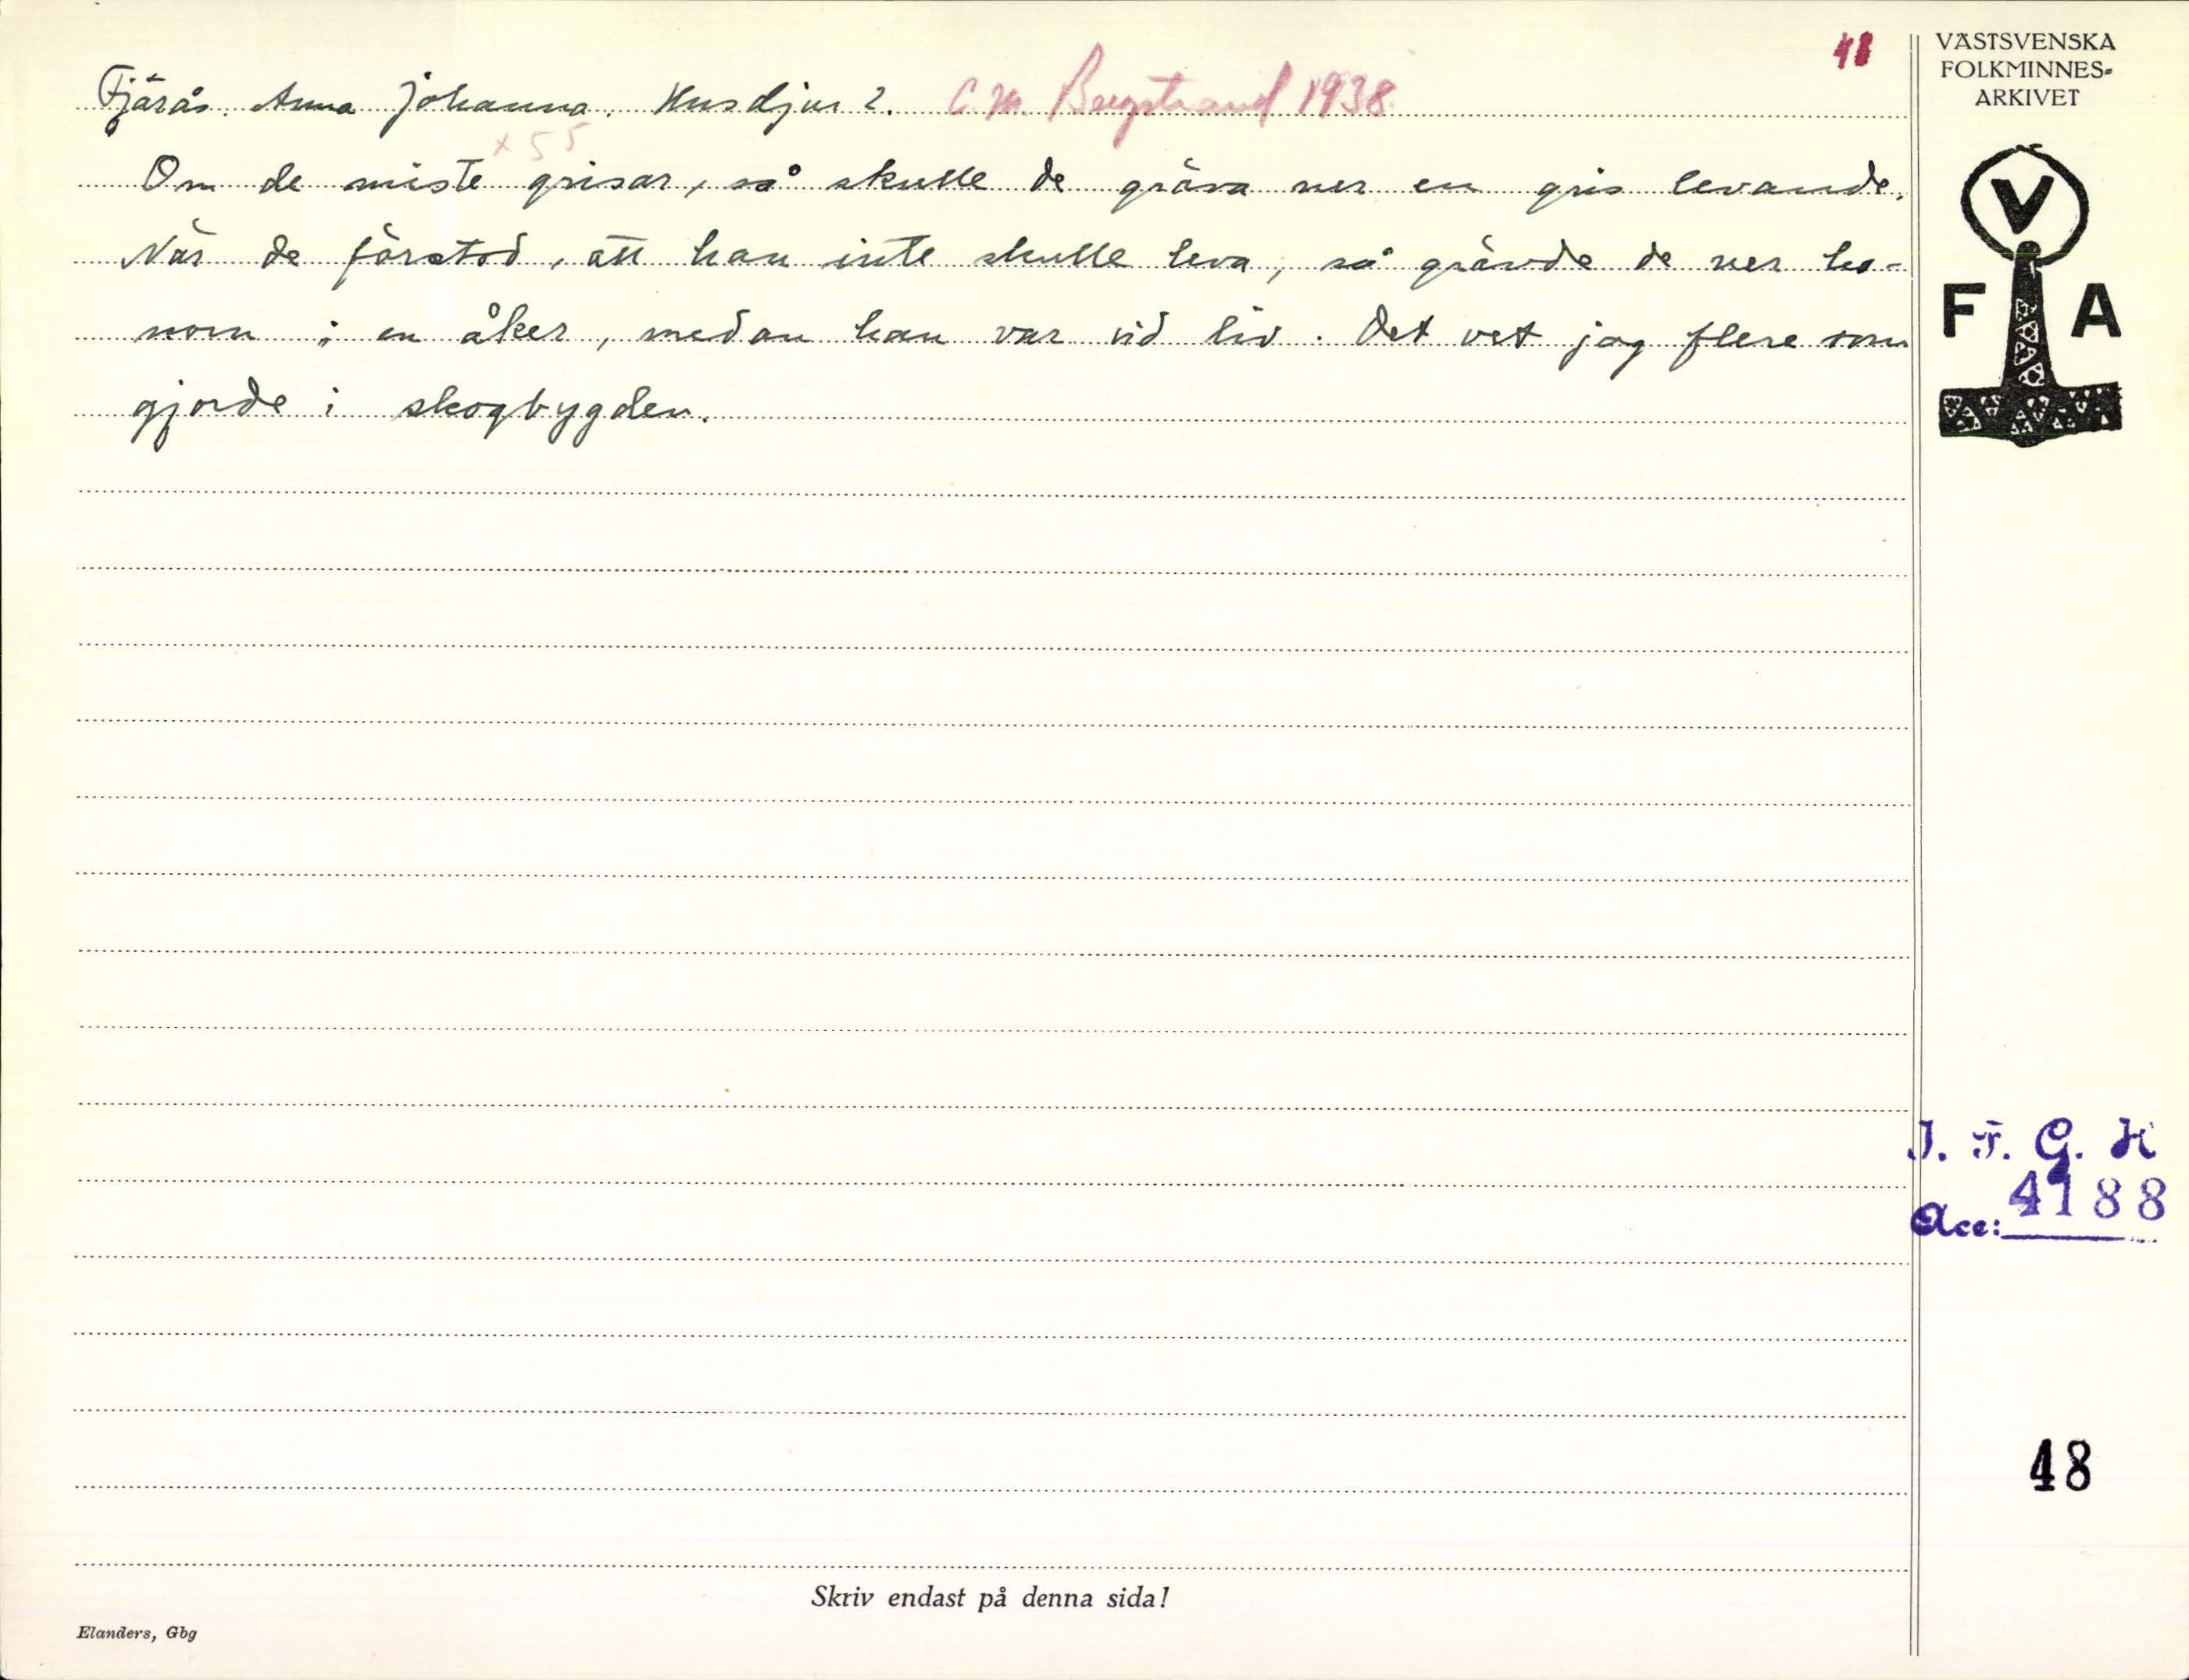 48
VÄSTSVENSKA
FOLKMINNES-
ARKIVET
Fjärås. Anna Johanna. Husdjur 2. C.M. Bergstrand 1938.
x 55
Om de miste grisar, så skulle de gräva ner en gris levande.
När de förstod, att han inte skulle leva, så grävde de ner ho-
nom i en åker, medan han var vid liv. Det vet jag flere som
gjorde i skogbygden.
V
F A
I. F. G. H
Acc: 4188
48
Skriv endast på denna sida!
Elanders, Gbg